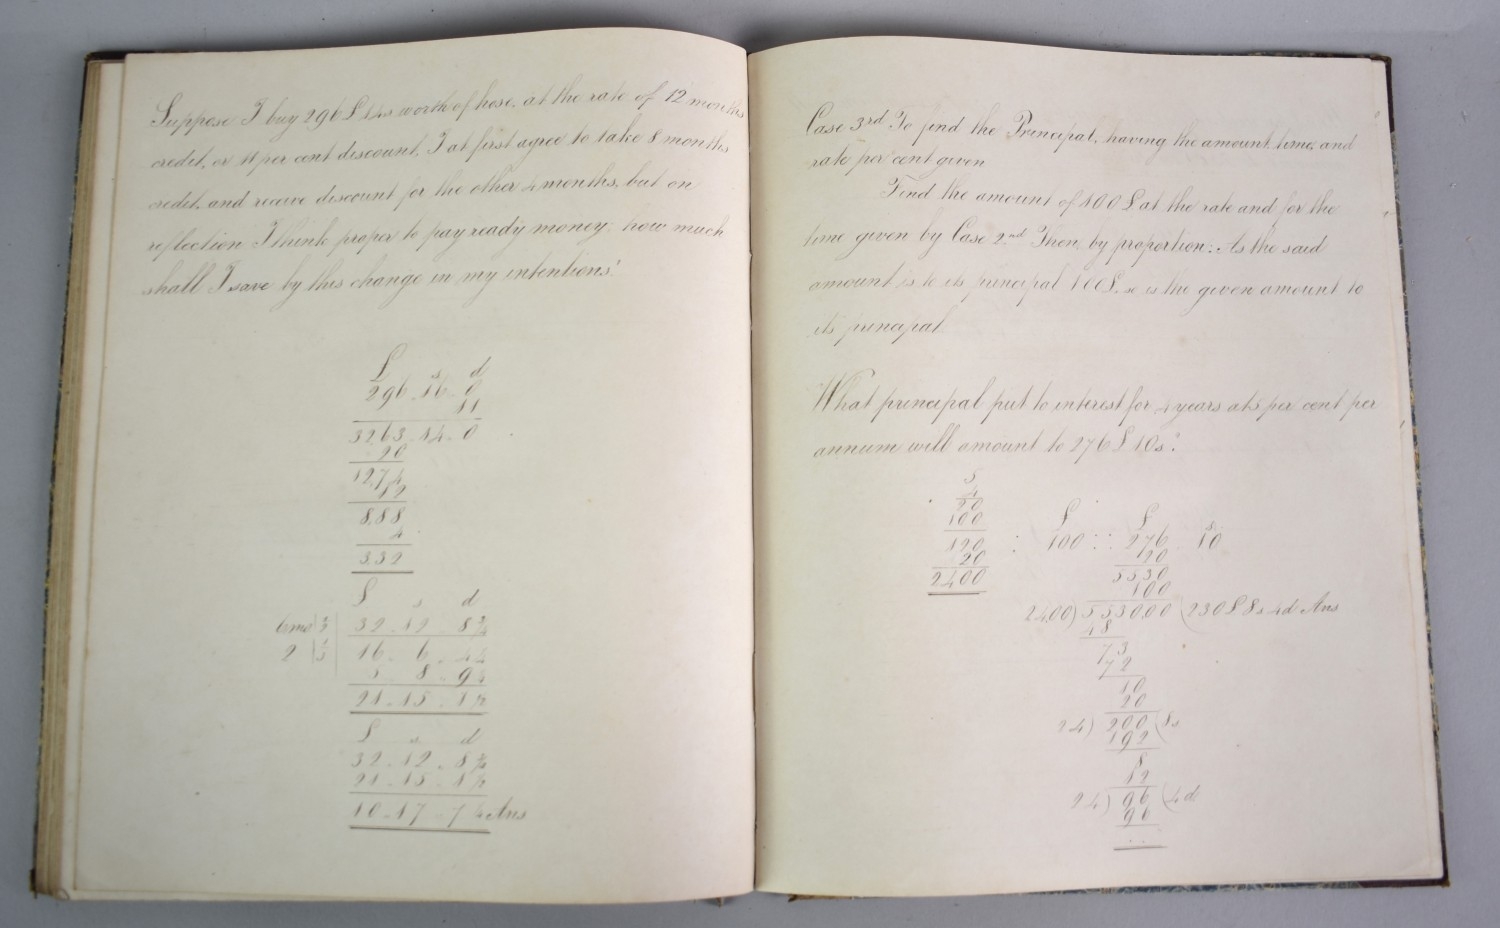 Suppose I buy 296£ 14s worth of hose, at the rate of 12 months
credit, or 11 per cent discount, I at first agree to take 8 months
credit, and receive discount for the other 4 months, but on
reflection I think proper to pay ready money; how much
shall I save by this change in my intentions?
£ s d
296 . 16 . 0
11
3263 . 14 . 0
20
12,74
12
8,88
4
3,52
£ s d
6mo 1/2 32 . 12 . 8 3/4
2 1/3 16 . 6 . 4 1/4
5 . 8 . 9 1/4
21 . 15 . 1 1/2
£ s d
32 . 12 . 8 3/4
21 . 15 . 1 1/2
10 . 17 . 7 1/4 Ans
Case 3rd To find the Principal, having the amount, time, and
rate per cent given
Find the amount of 100£ at the rate and for the
time given by Case 2nd Then, by proportion: As the said
amount is to its principal 100£, so is the given amount to
its principal
What principal put to interest for 4 years at 5 per cent per
annum will amount to 276£ 10s?
5
4
20
100
120
20
2400
£ £ s
: 100 :: 276 . 10
20
5530
100
24,00) 5530,00 (230£ 8s 4d Ans
48
73
72
10
20
24) 200 (8s
192
8
12
24) 96 (4d
96